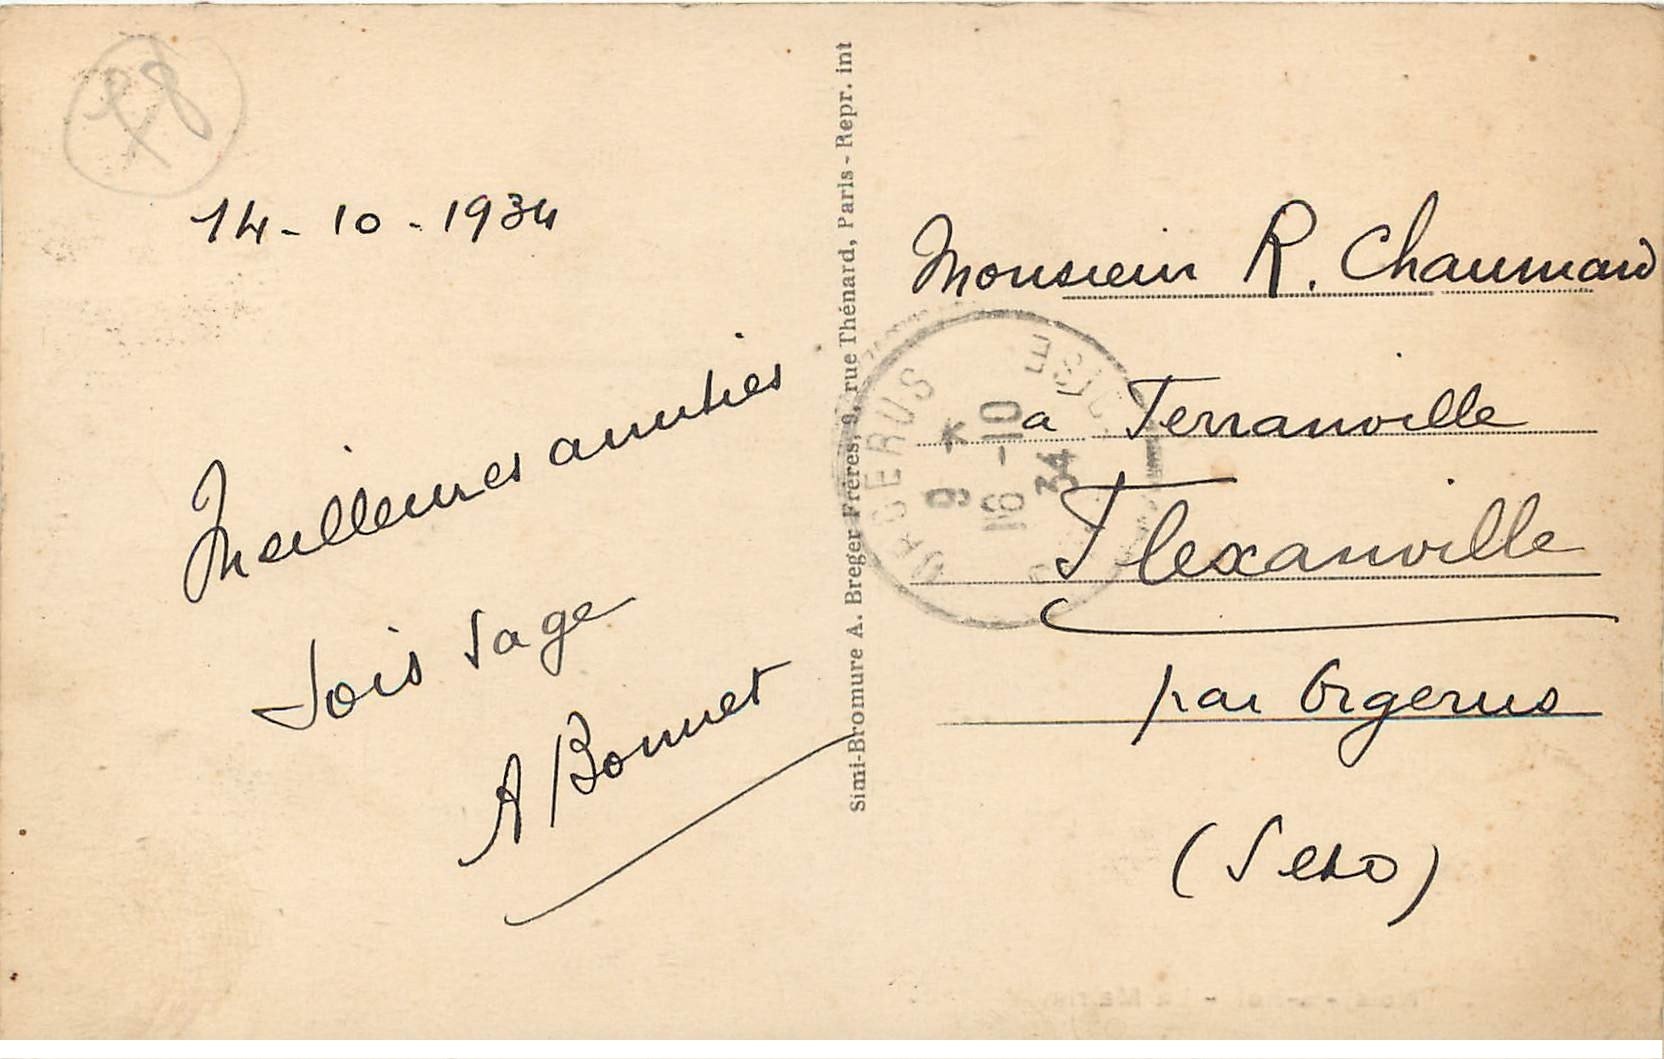 78
14-10-1934
Meilleures amitiés
Sois sage
A Bonnet
Simi-Bromure A. Breger Frères, 9, rue Thénard, Paris - Repr. int
Monsieur R. Chaumard
a Terranville
Flexanville
par Orgerus
(S et O)
ORGERUS
S. ET OISE
9 *
16-10
34